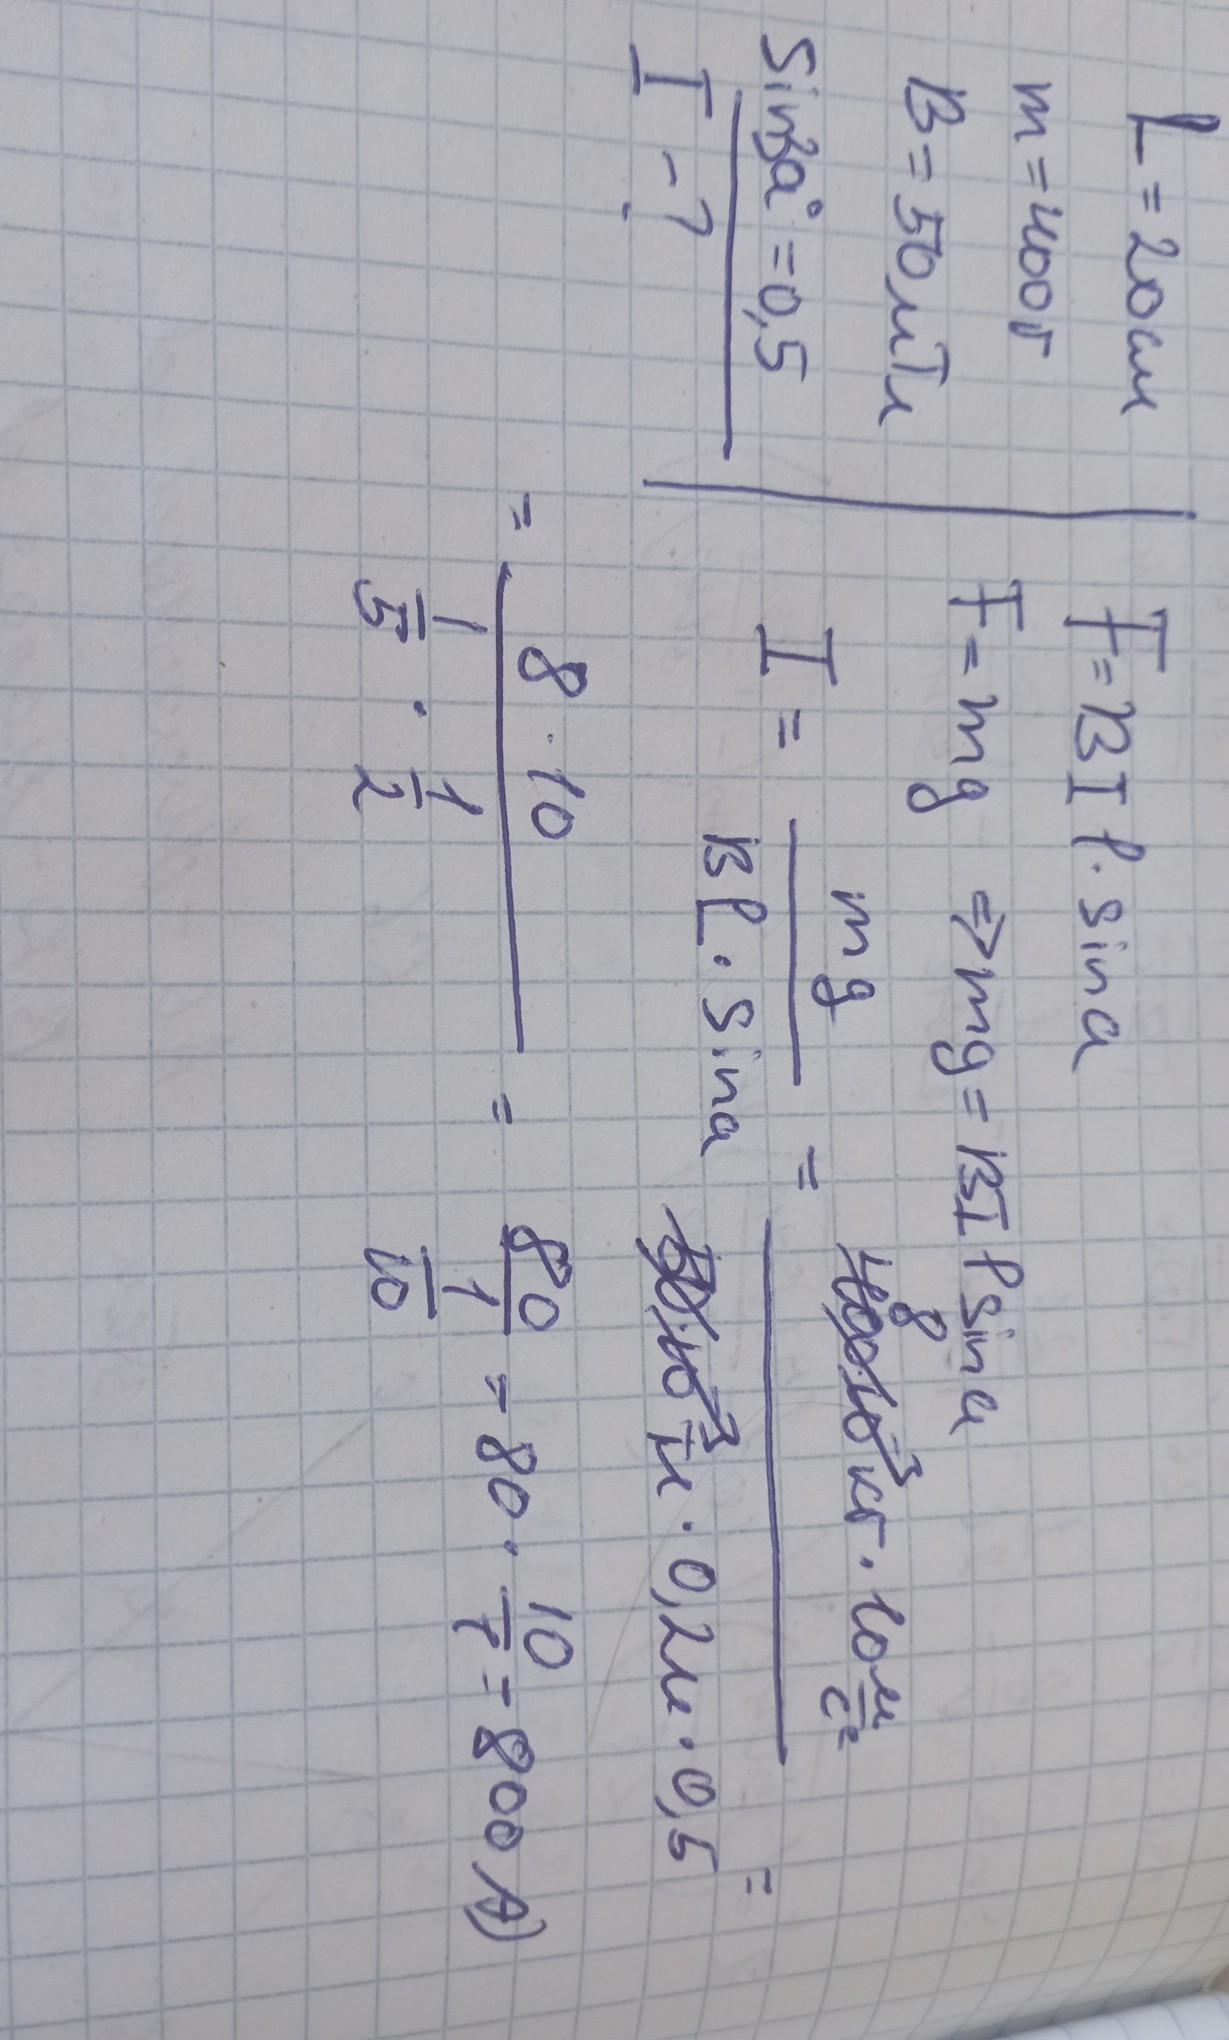 L = 20см
m = 400г
B = 50мТл
Sin30° = 0,5
I - ?
F = BIl · sina
F = mg ⇒ mg = BIlsina
I = mg / Bl · sina = 400·10⁻³кг · 10 м/с² / 50·10⁻³Тл · 0,2м · 0,5 =
8
= 8 · 10 / 1/5 · 1/2 = 80 / 1/10 = 80 · 10/1 = 800 A)